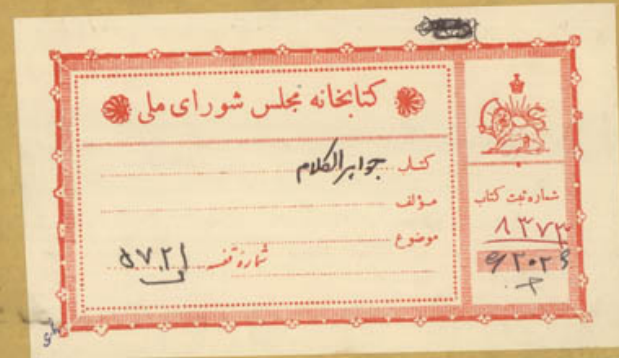 کتابخانه مجلس شورای ملی
کتاب جواهرالکلام
مؤلف
موضوع
شماره قفسه
۵۷۲۱
شماره ثبت کتاب
۸۳۷۳